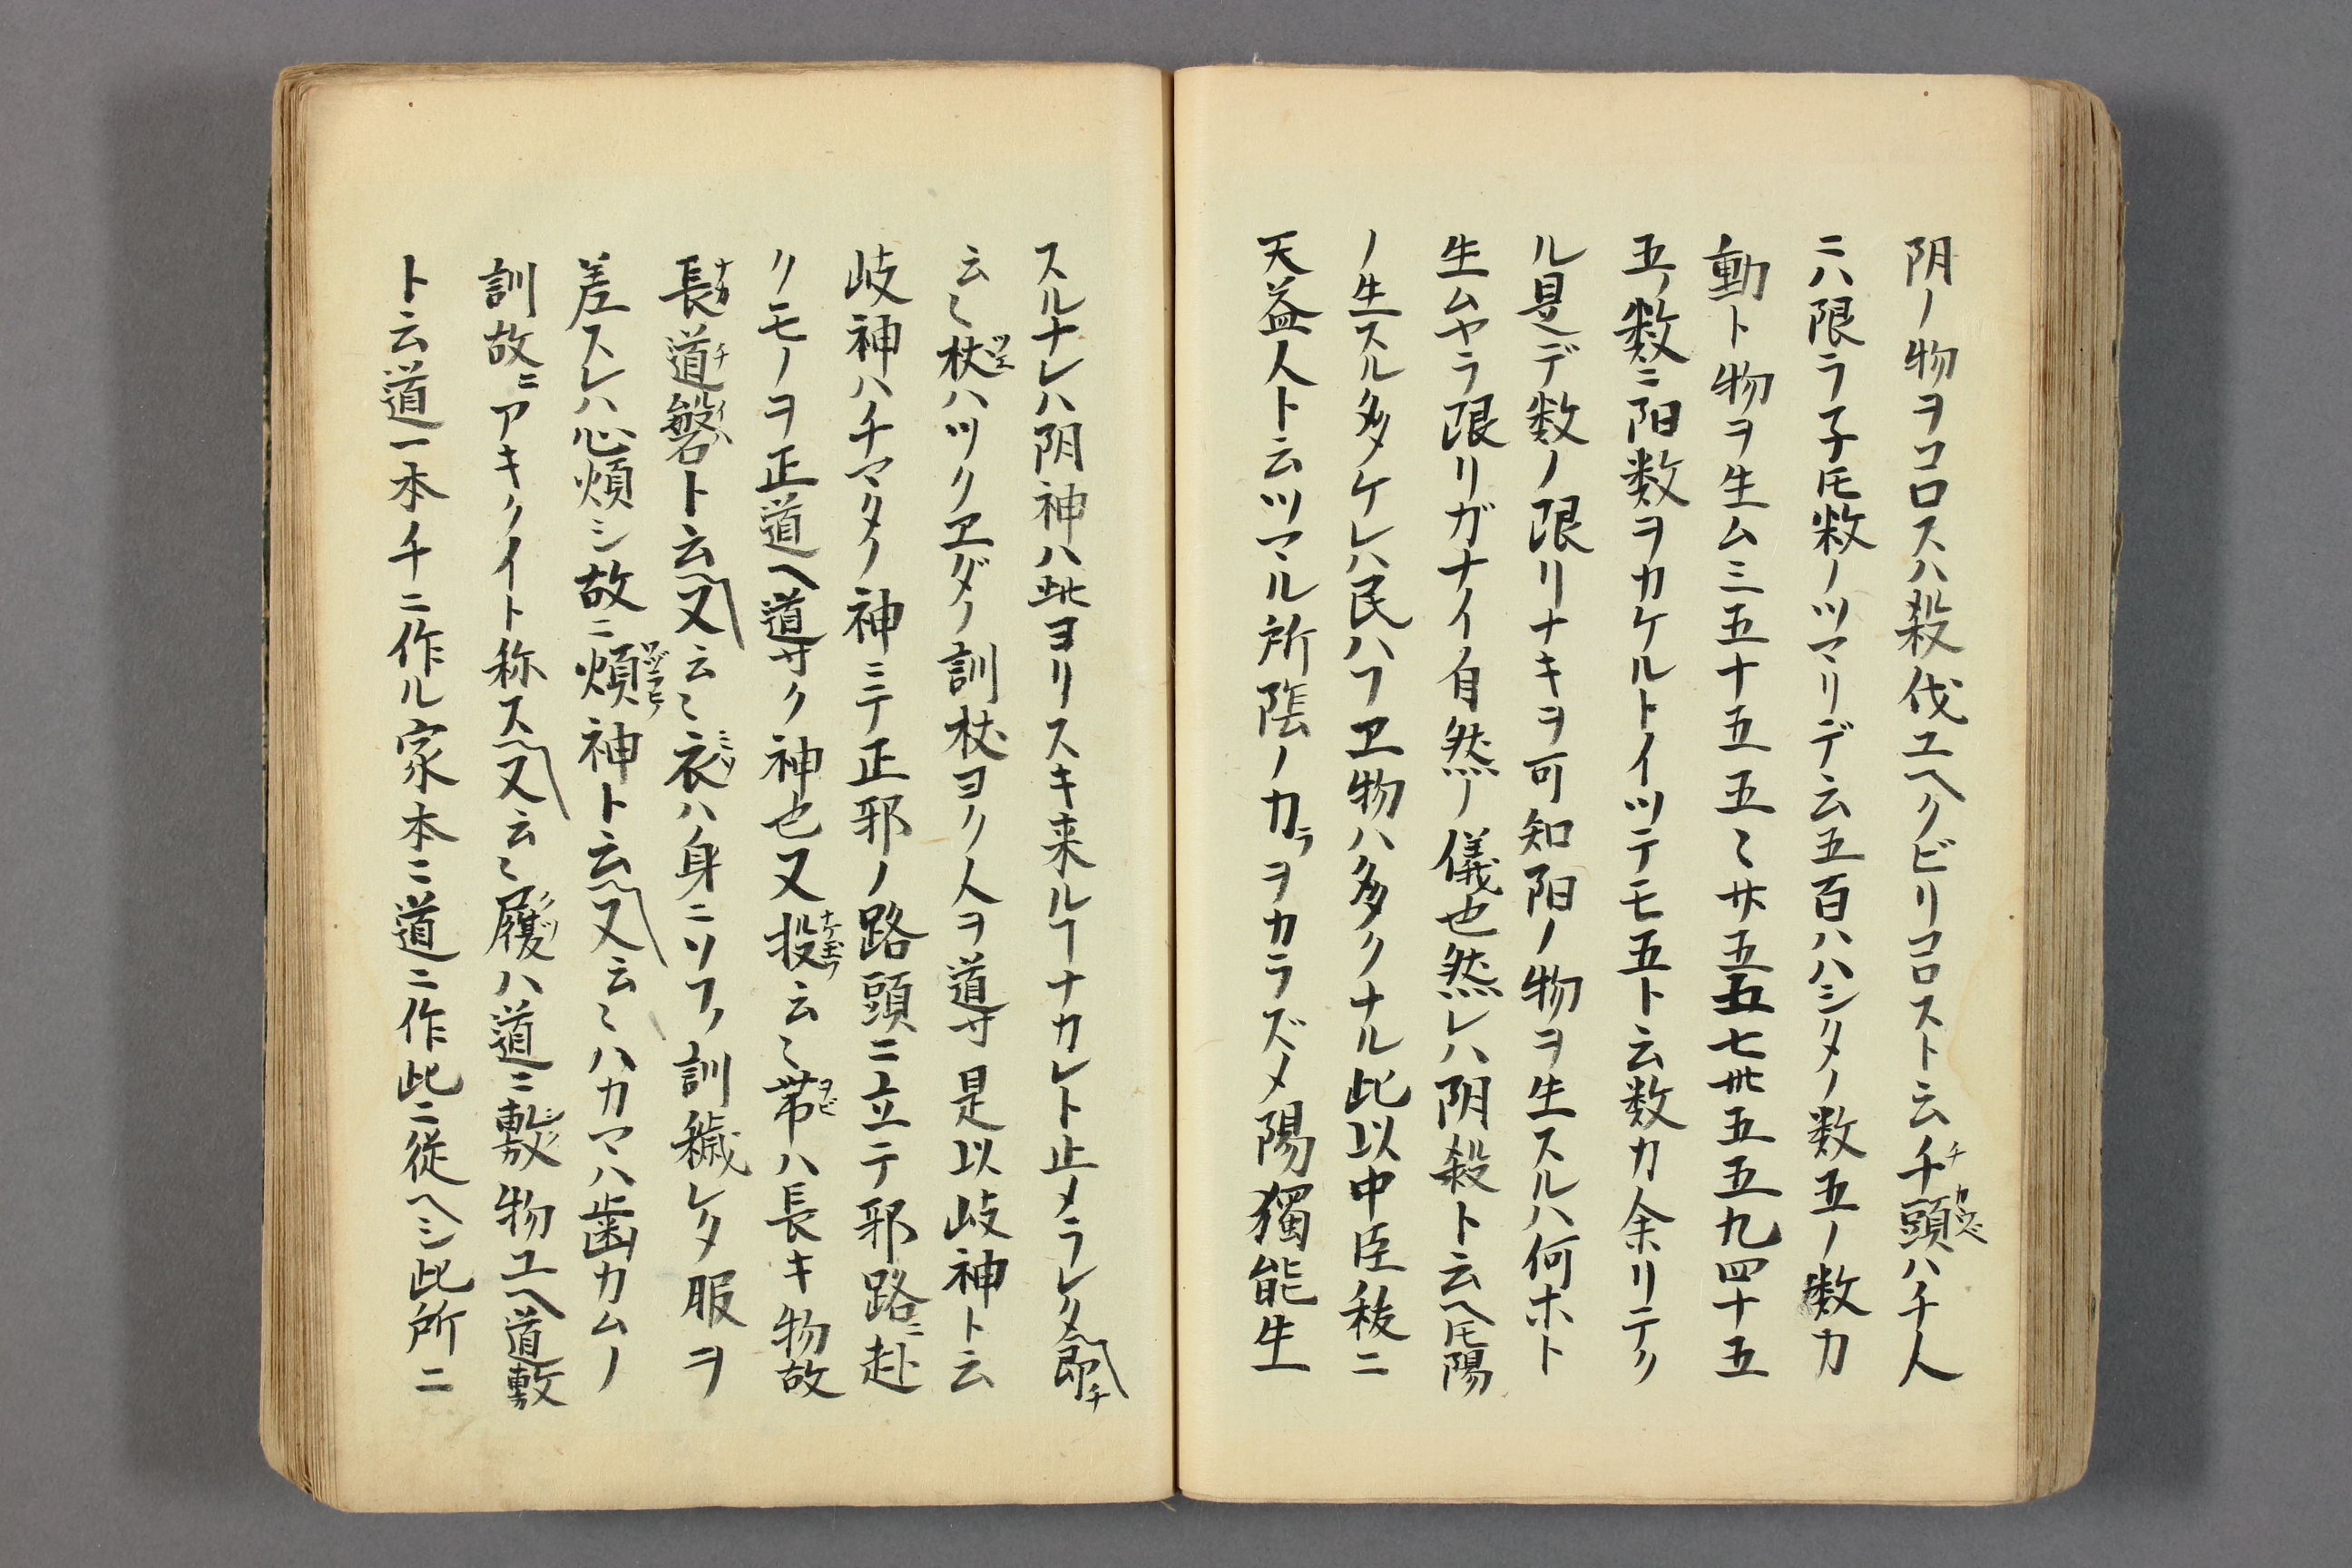 阴ノ物ヲコロスハ殺伐ユヘクビリコロスト云千頭ハ千人
ニハ限ラ子𪜈数ノツマリデ云五百ハハシタノ数五ノ数カ
動ト物ヲ生ム三五十五五〻廿五五七卅五五九四十五
五ノ数ニ阳数ヲカケルトイツテモ五ト云数カ余リテク
ル見デ数ノ限リナキヲ可知阳ノ物ヲ生スルハ何ホト
生ムヤラ限リガナイ自然ノ儀也然レハ阴殺ト云ヘ𪜈陽
ノ生スル多ケレハ民ハフヱ物ハ多クナル此以中臣祓ニ
天益人ト云ツマル所陰ノカラヲカラズメ陽獨能生
スルナレハ阴神ハ此ヨリスキ来ルヿナカレト止メラレタ即チ
云〻杖ハツクヱダノ訓杖ヨリ人ヲ導是以岐神ト云
岐神ハチマタノ神ニテ正邪ノ路頭ニ立テ邪路ニ赴
クモノヲ正道ヘ導ク神也又投云〻帯ハ長キ物故
長道磐ト云又云〻衣ハ身ニソフノ訓穢レタ服ヲ
差スレハ心煩シ故ニ煩神ト云又云〻ハカマハ歯カムノ
訓故ニアキクイト称ス又云〻履ハ道ニ敷物ユヘ道敷
ト云道一本チニ作ル家本ニ道ニ作此ニ従ヘシ此所ニ